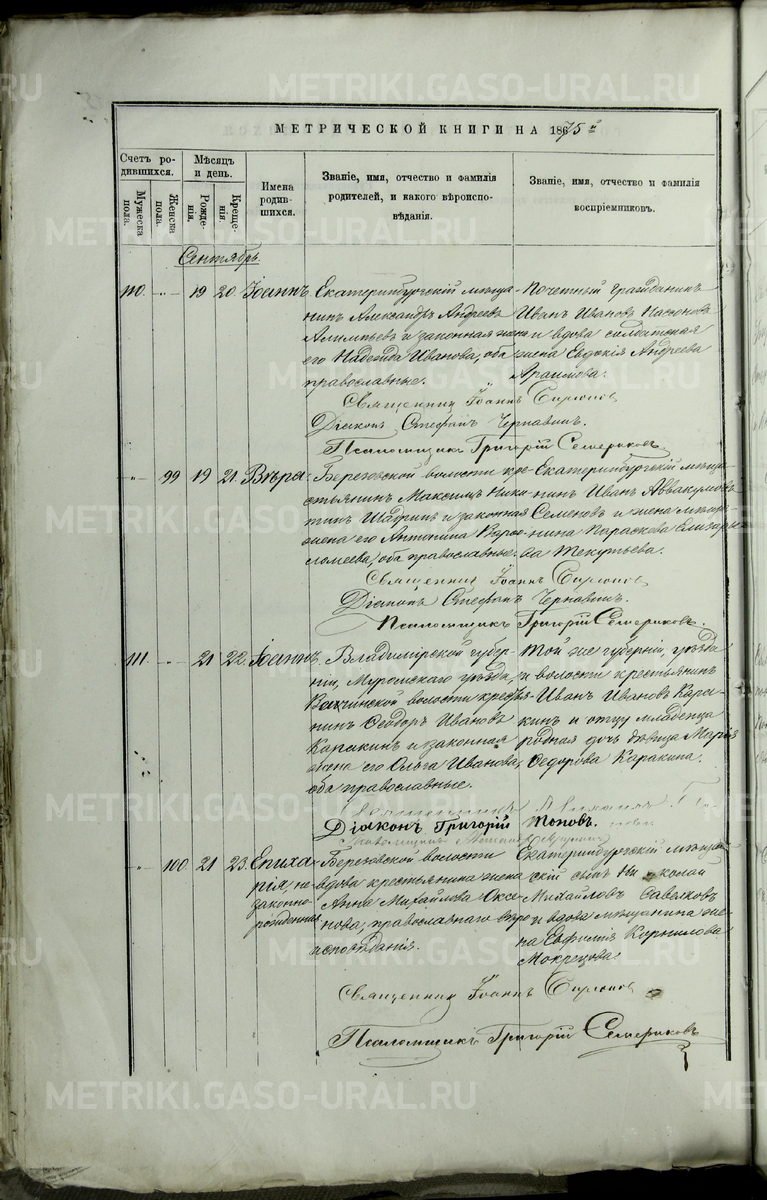 МЕТРИЧЕСКОЙ КНИГИ НА 1875й
Счетъ родившихся.
Мужеска пола.
Женска пола.
Мѣсяцъ и день.
Рожденія.
Крещенія.
Имена родившихся.
Званіе, имя, отчество и фамилія
родителей, и какого вѣроиспо-
вѣданія.
Званіе, имя, отчество и фамилія
воспріемниковъ.
Сентябрь
110. " 19 20. Іоаннъ.
Екатеринбургскій мѣща-
нинъ Александръ Андреевъ
и законная жена
его Надежда Иванова, оба
православные.
Почетный гражданинъ
Иванъ Ивановъ
и вдова солдатская
жена Евдокія Андреева
Священникъ Іоаннъ
Діаконъ Стефанъ Чернавинъ.
Псаломщикъ Григорій Семериковъ.
" 99 19 21. Вѣра.
Березовской волости кре-
стьянинъ Максимъ Ники-
тинъ и законная
жена его Антонина Варѳо-
ломеева, оба православные.
Екатеринбургскій мѣща-
нинъ Иванъ Аввакумовъ
Семеновъ и жена мѣща-
нина Параскева Елизаро-
ва Текутьева.
Священникъ Іоаннъ
Діаконъ Стефанъ Чернавинъ.
Псаломщикъ Григорій Семериковъ.
111. " 21 22. Іоаннъ.
Владимірской губер-
ніи, Муромскаго уѣзда,
волости крестья-
нинъ Ѳеодоръ Ивановъ
и законная
жена его Ольга Иванова,
оба православные.
Той же губерніи, уѣзда
и волости крестьянинъ
Иванъ Ивановъ Кара-
кинъ и отцу младенца
родная дочь дѣвица Марія
Ѳедорова Каракина.
Діаконъ Григорій Поповъ.
" 100 21 23. Епиха-
рія, не-
законно-
рожденная
Березовской волости
вдова крестьянина жена
Анна Михайлова Оксе-
нова, православнаго вѣро-
исповѣданія.
Екатеринбургскій мѣщан-
скій сынъ Николай
Михайловъ Савельковъ
и вдова мѣщанина же-
на Евфимія Корнилова
Мокрецова.
Священникъ Іоаннъ
Псаломщикъ Григорій Семериковъ
METRIKI.GASO-URAL.RU